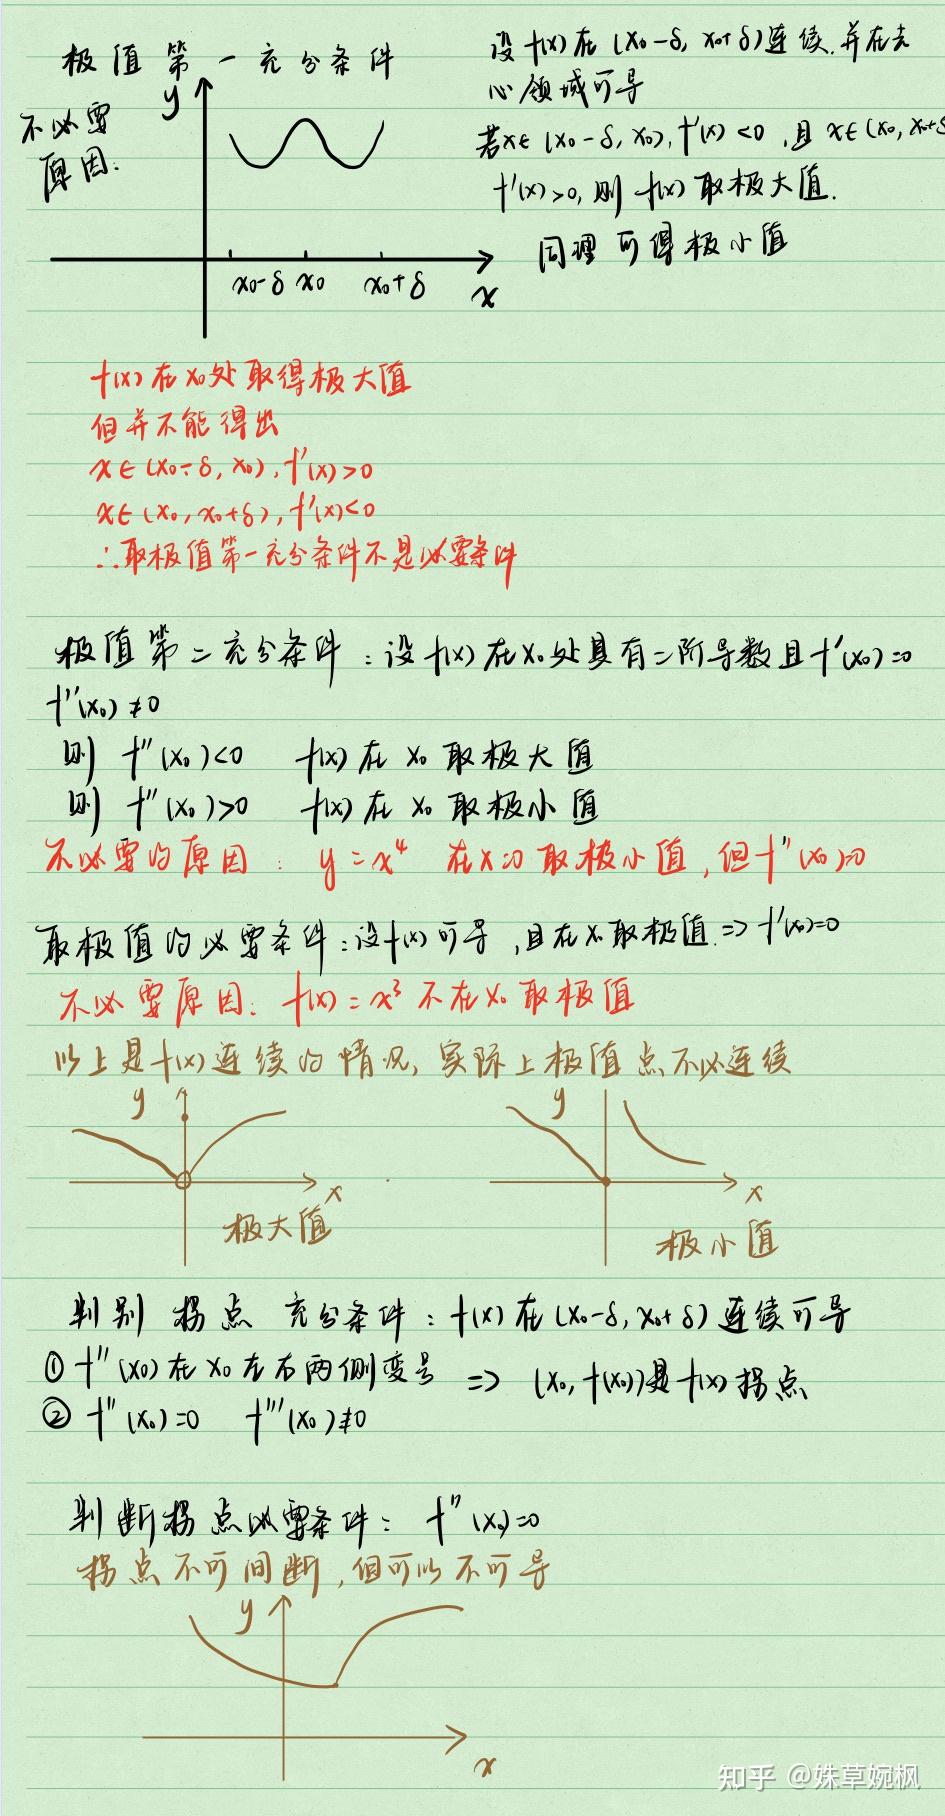 极值第一充分条件
不必要
原因:
y
x₀-δ x₀ x₀+δ
x
设f(x)在(x₀-δ, x₀+δ)连续.并在去
心领域可导
若x∈(x₀-δ, x₀), f'(x)<0,且x∈(x₀, x₀+δ
f'(x)>0,则f(x)取极大值.
同理可得极小值
f(x)在x₀处取得极大值
但并不能得出
x∈(x₀-δ, x₀), f'(x)>0
x∈(x₀, x₀+δ), f'(x)<0
∴取极值第一充分条件不是必要条件
极值第二充分条件:设f(x)在x₀处具有二阶导数且f'(x₀)=0
f''(x₀)≠0
则 f''(x₀)<0 f(x)在x₀取极大值
则 f''(x₀)>0 f(x)在x₀取极小值
不必要的原因: y=x⁴ 在x=0取极小值,但f''(x₀)=0
取极值的必要条件:设f(x)可导,且在x₀取极值.=>f'(x₀)=0
不必要原因: f(x)=x³不在x₀取极值
以上是f(x)连续的情况,实际上极值点不必连续
y
x
极大值
y
x
极小值
判别拐点充分条件: f(x)在(x₀-δ, x₀+δ)连续可导
① f''(x₀)在x₀左右两侧变号 => (x₀, f(x₀))是f(x)拐点
② f''(x₀)=0 f'''(x₀)≠0
判断拐点必要条件: f''(x₀)=0
拐点不可间断,但可以不可导
y
x
知乎 @姝草婉枫